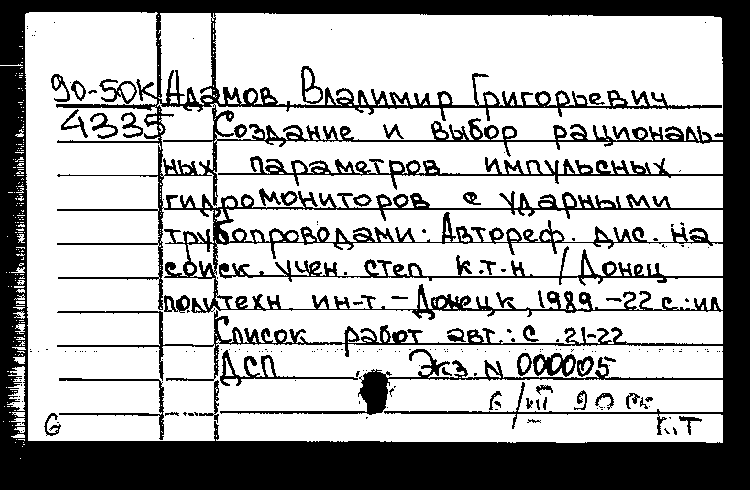 90-50К Адамов, Владимир Григорьевич
4335 Создание и выбор рациональ-
ных параметров импульсных
гидромониторов с ударными
трубопроводами: Автореф. дис. на
соиск. учен. степ. к.т.н. / Донец
политехн. ин-т. – Донецк, 1989. – 22 с.: ил
Список работ авт.: с. 21-22
ДСП Экз. N 000005
6/VII 90
G К.Т